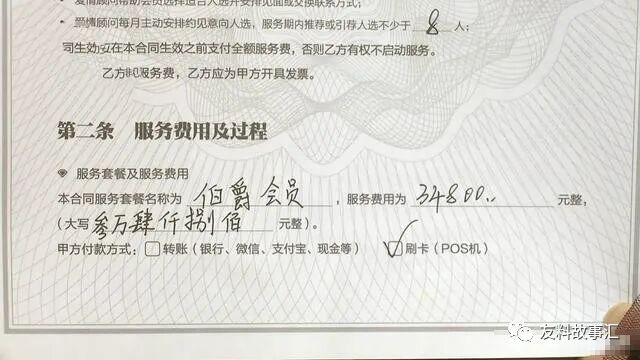 爱情顾问帮助会员选择适合人选并安排见面或交换联系方式；
爱情顾问每月主动安排约见意向人选，服务期内推荐或引荐人选不少于 8 人；
司生效 在本合同生效之前支付全额服务费，否则乙方有权不启动服务。
乙方 服务费，乙方应为甲方开具发票。
第二条 服务费用及过程
◆ 服务套餐及服务费用
本合同服务套餐名称为 伯爵会员 ，服务费用为 34800.. 元整，
（大写 叁万肆仟捌佰 元整）。
甲方付款方式：☐转账（银行、微信、支付宝、现金等） ☑刷卡（POS机）
友料故事汇